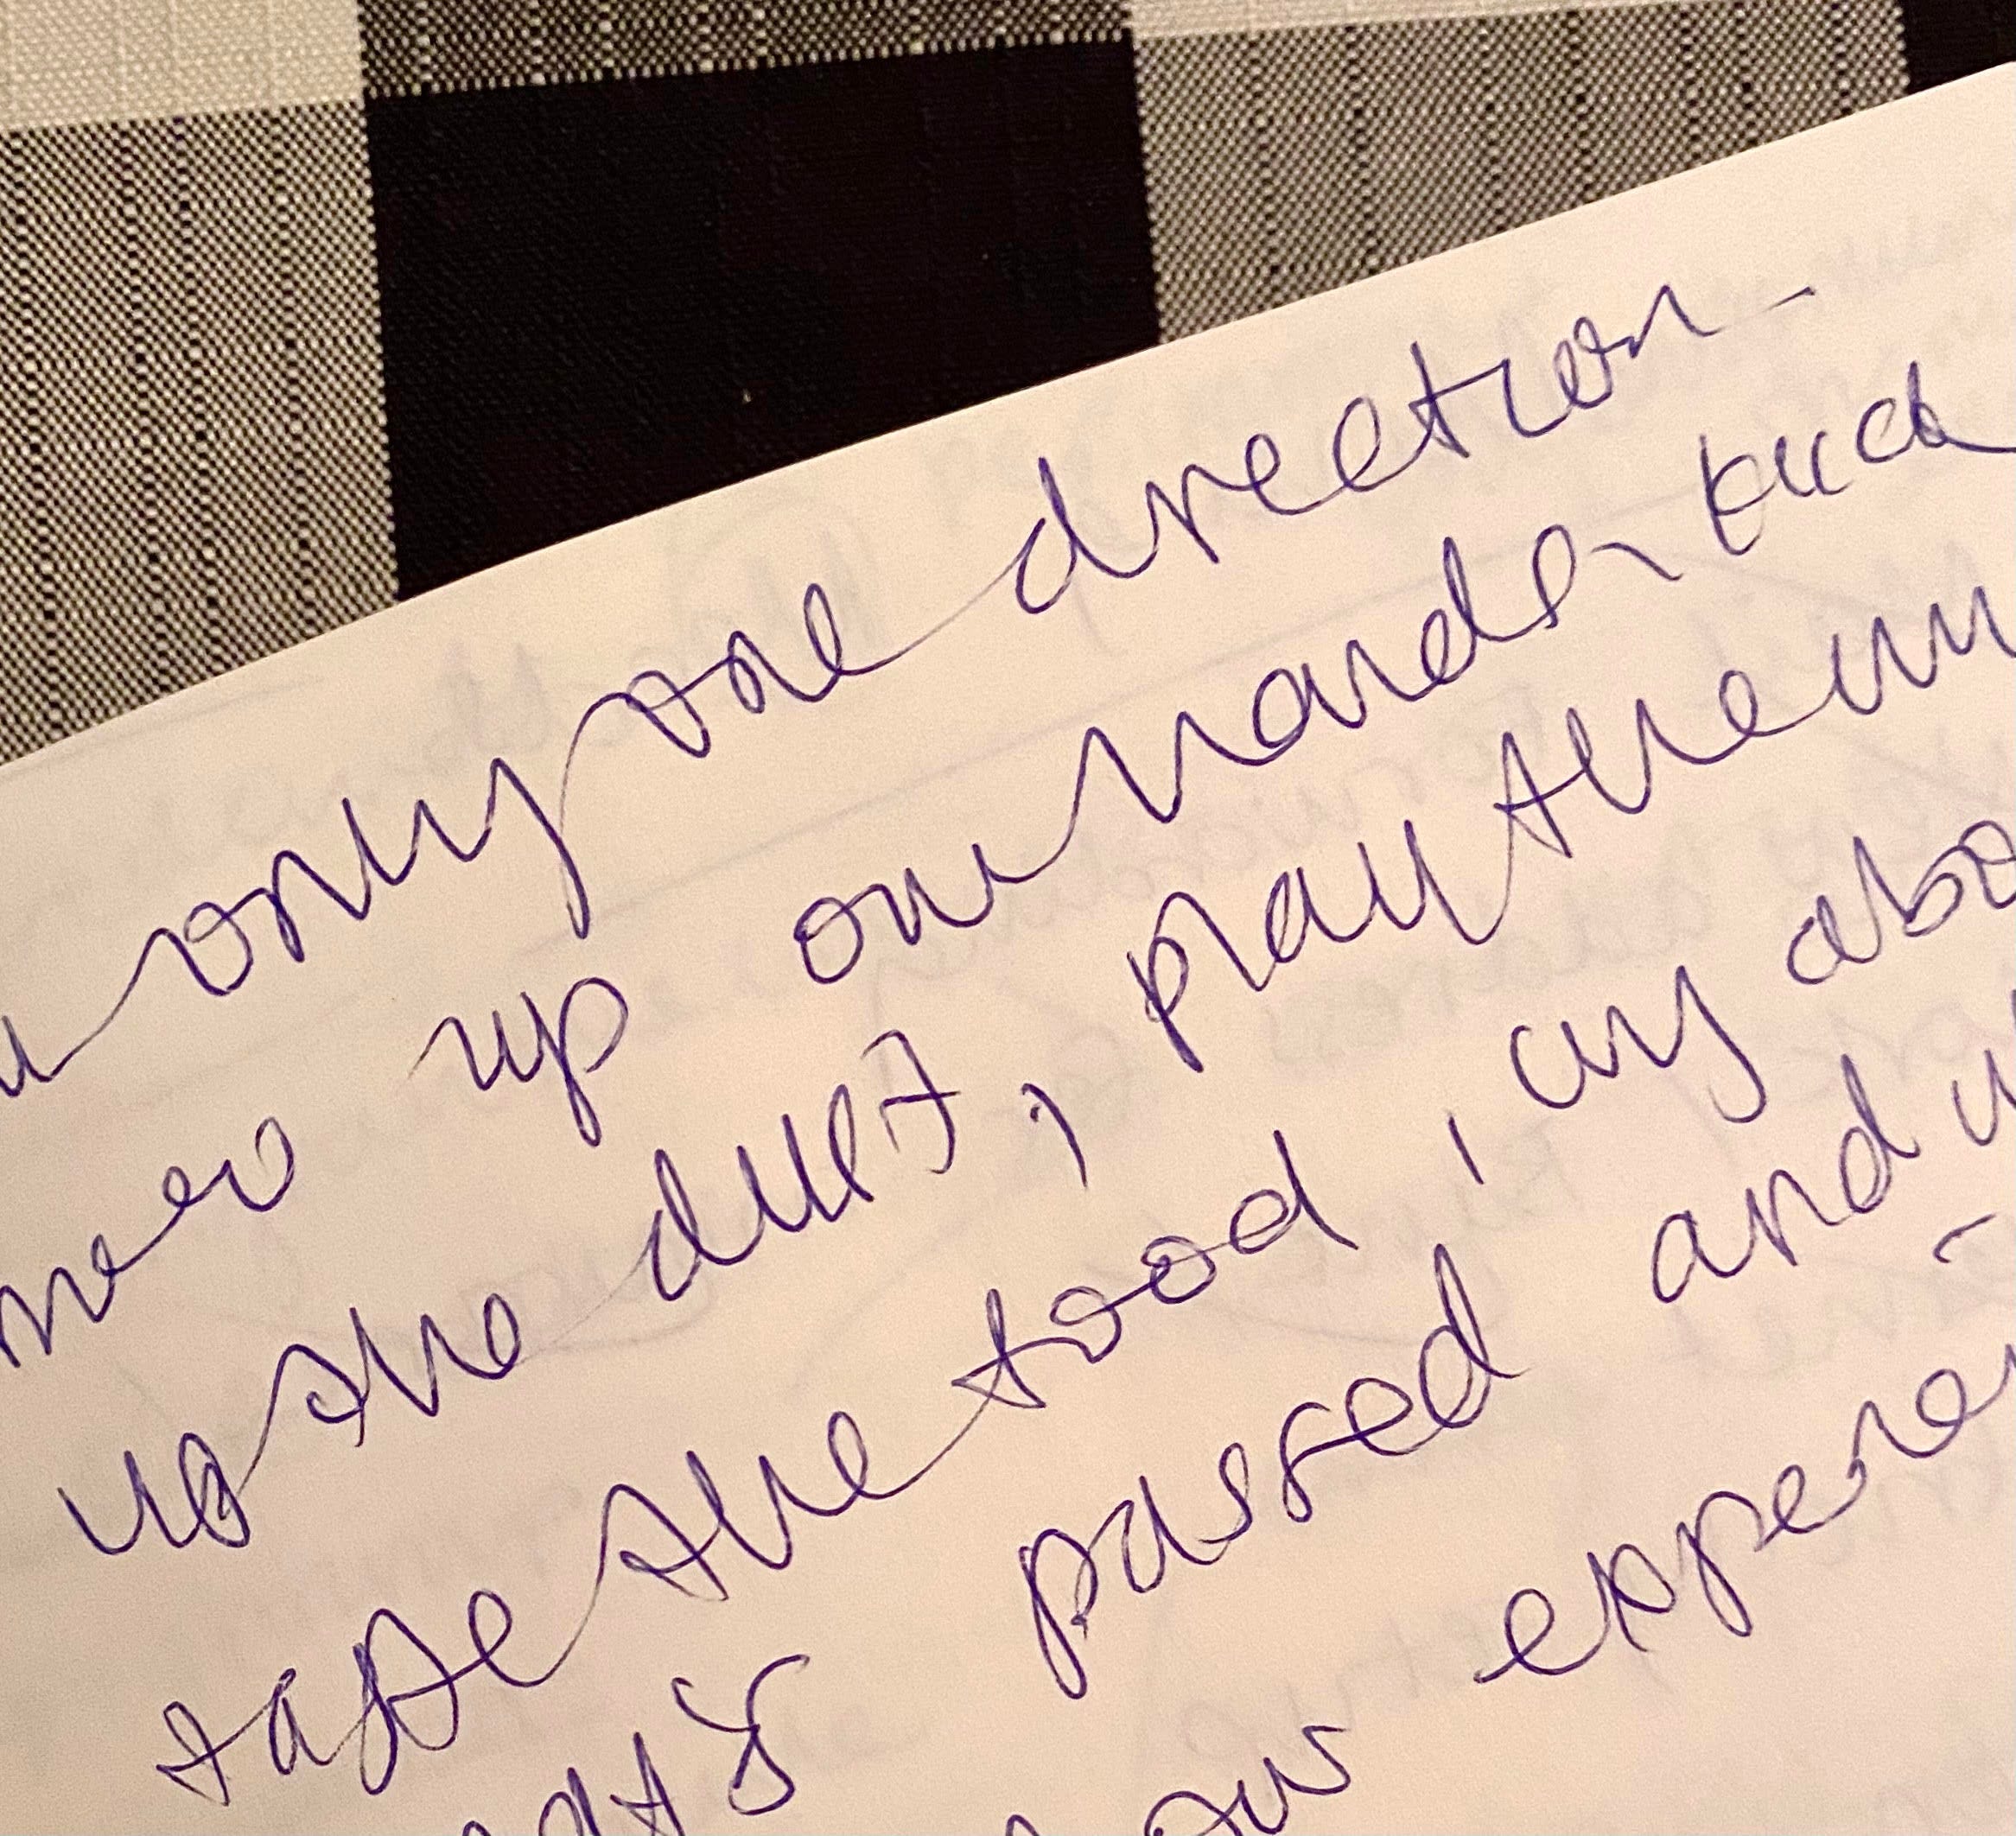 only one direction -
up our hands - kick
up the dust, play them
taste the food, cry abo
passed and
our experie